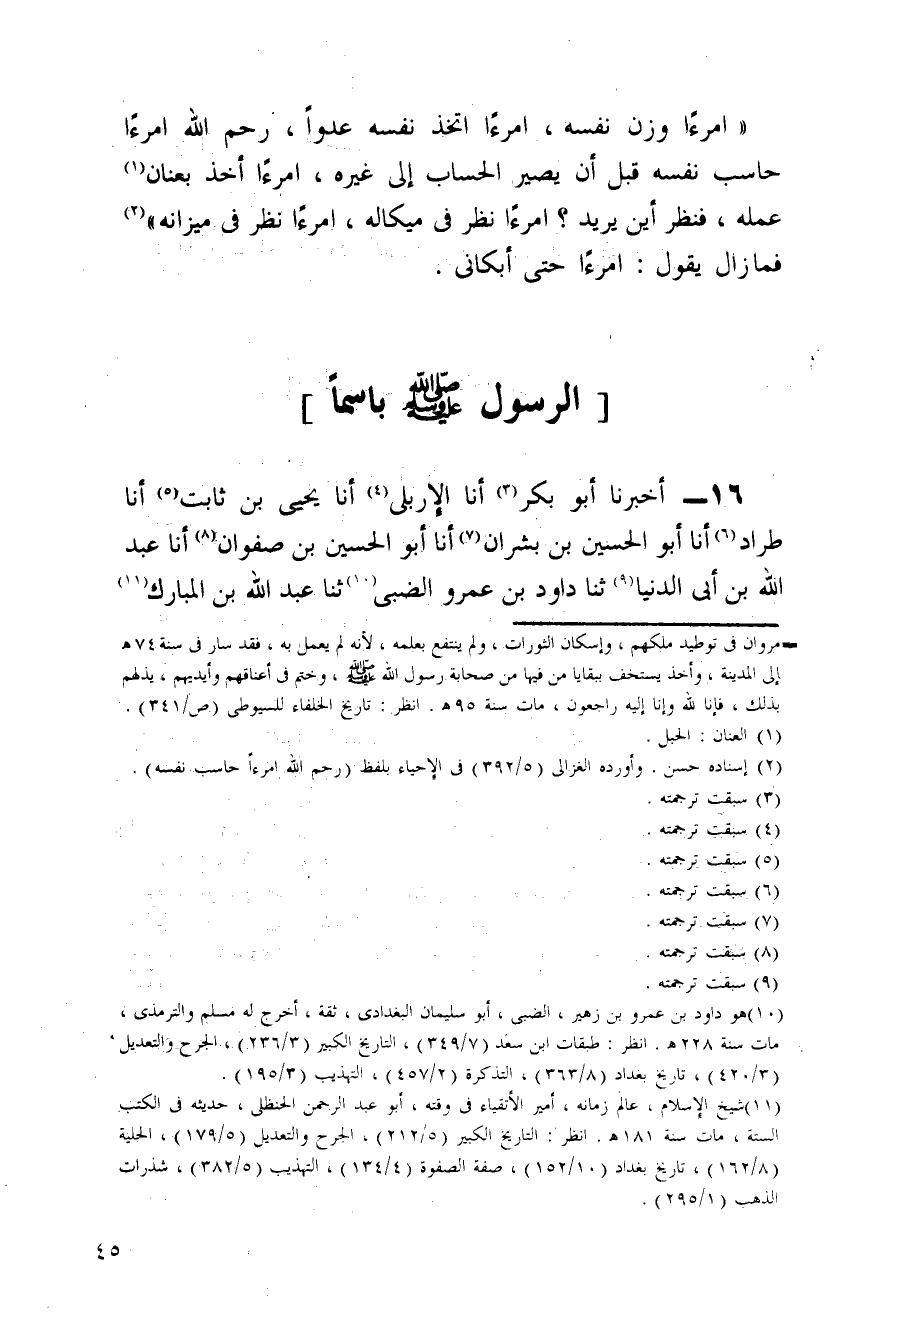 « امرءًا وزن نفسه ، امرءًا اتخذ نفسه عدواً ، رحم الله امرءًا
حاسب نفسه قبل أن يصير الحساب إلى غيره ، امرءًا أخذ بعنان(١)
عمله ، فنظر أين يريد ؟ امرءًا نظر فى ميكاله ، امرءًا نظر فى ميزانه»(٢)
فمازال يقول : امرءًا حتى أبكانى .
[ الرسول ﷺ باسماً ]
١٦ــ أخبرنا أبو بكر(٣) أنا الإربلى(٤) أنا يحيى بن ثابت(٥) أنا
طراد(٦) أنا أبو الحسين بن بشران(٧) أنا أبو الحسين بن صفوان(٨) أنا عبد
الله بن أبى الدنيا(٩) ثنا داود بن عمرو الضبى(١٠) ثنا عبد الله بن المبارك(١١)
= مروان فى توطيد ملكهم ، وإسكان الثورات ، ولم ينتفع بعلمه ، لأنه لم يعمل به ، فقد سار فى سنة ٧٤ هـ
إلى المدينة ، وأخذ يستخف ببقايا من فيها من صحابة رسول الله ﷺ ، وختم فى أعناقهم وأيديهم ، يذلهم
بذلك ، فإنا لله وإنا إليه راجعون ، مات سنة ٩٥ هـ . انظر : تاريخ الخلفاء للسيوطى (ص/٣٤١) .
(١) العنان : الحبل .
(٢) إسناده حسن . وأورده الغزالى (٣٩٢/٥) فى الإحياء بلفظ (رحم الله امرءاً حاسب نفسه) .
(٣) سبقت ترجمته .
(٤) سبقت ترجمته .
(٥) سبقت ترجمته .
(٦) سبقت ترجمته .
(٧) سبقت ترجمته .
(٨) سبقت ترجمته .
(٩) سبقت ترجمته .
(١٠) هو داود بن عمرو بن زهير ، الضبى ، أبو سليمان البغدادى ، ثقة ، أخرج له مسلم والترمذى ،
مات سنة ٢٢٨ هـ . انظر : طبقات ابن سعد (٣٤٩/٧) ، التاريخ الكبير (٢٣٦/٣) ، الجرح والتعديل
(٤٢٠/٣) ، تاريخ بغداد (٣٦٣/٨) ، التذكرة (٤٥٧/٢) ، التهذيب (١٩٥/٣) .
(١١) شيخ الإسلام ، عالم زمانه ، أمير الأتقياء فى وقته ، أبو عبد الرحمن الحنظلى ، حديثه فى الكتب
الستة ، مات سنة ١٨١ هـ . انظر : التاريخ الكبير (٢١٢/٥) ، الجرح والتعديل (١٧٩/٥) ، الحلية
(١٦٢/٨) ، تاريخ بغداد (١٥٢/١٠) ، صفة الصفوة (١٣٤/٤) ، التهذيب (٣٨٢/٥) ، شذرات
الذهب (٢٩٥/١) .
٤٥